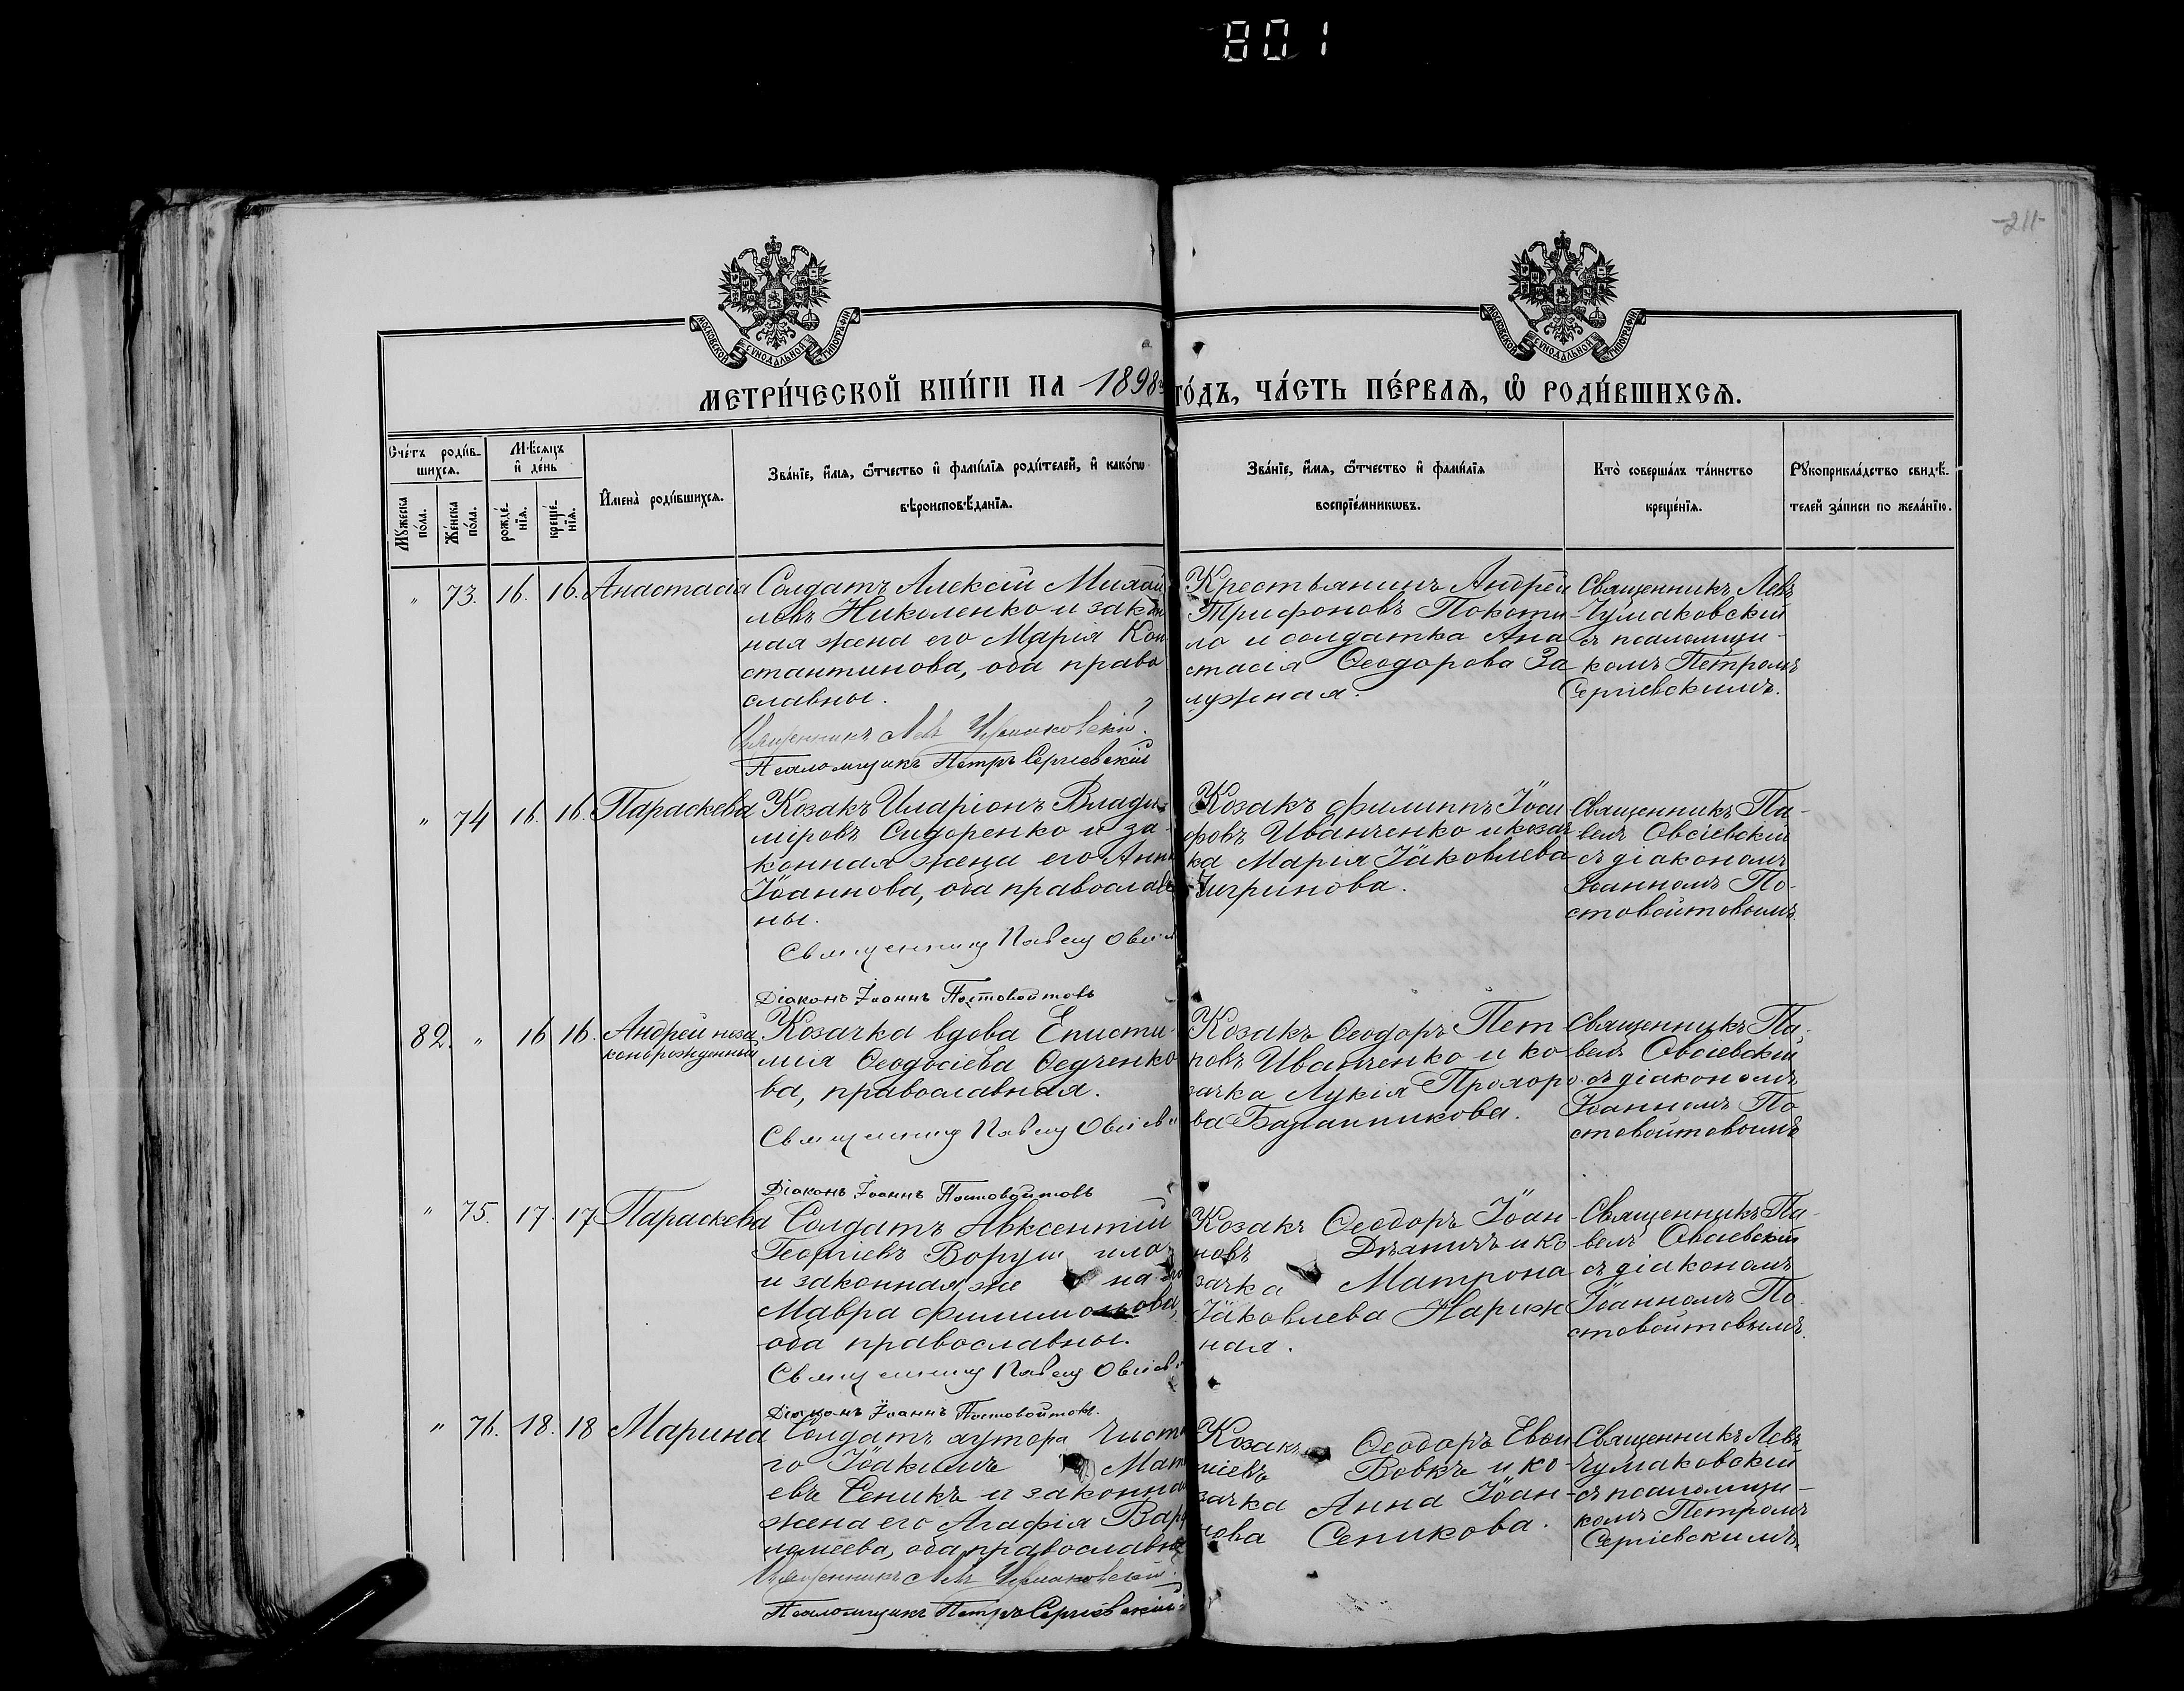 801
-211-
МОСКОВСКОЙ СѴНОДАЛЬНОЙ ТИПОГРАФІИ
МОСКОВСКОЙ СѴНОДАЛЬНОЙ ТИПОГРАФІИ
МЕТРИ́ЧЕСКОЙ КНИ́ГИ НА 1898 ГО́ДЪ, ЧА́СТЬ ПЕ́РВАѦ, Ѽ РОДИ́ВШИХСѦ.
Сче́тъ роди́в-
шихсѧ.
Мꙋжеска по́ла.
Же́нска по́ла.
Мѣ́сѧцъ и҆ де́нь
рожде́-нїѧ.
креще́-нїѧ.
И҆мена̀ роди́вшихсѧ.
Зва́нїе, и҆́мѧ, ѻ҆́тчество и҆ фами́лїѧ роди́телей, и҆ како́гѡ
вѣроисповѣ́данїѧ.
Зва́нїе, и҆́мѧ, ѻ҆́тчество и҆ фами́лїѧ
воспрїе́мникѡвъ.
Кто̀ соверша́лъ та́инство
креще́нїѧ.
Рꙋкоприкла́дство свидѣ́-
телей за́писи по жела́нїю.
" 73. 16. 16. Анастасія
Солдатъ Алексій Михай
ловъ Николенко и закон
ная жена его Марія Кон
стантинова, оба право
славны.
Священникъ Левъ Чумаковскій.
Псаломщикъ Петръ Сергіевскій
Крестьянинъ Андрей
Трифоновъ Покоти
ло и солдатка Ана
стасія Ѳеодорова За
лужная.
Священникъ Левъ
Чумаковскій
съ псаломщи-
комъ Петромъ
Сергіевскимъ.
" 74 16. 16. Параскева
Козакъ Иларіонъ Влади-
міровъ Сидоренко и за-
конная жена его Анна
Іоаннова, оба православ
ны.
Священникъ Павелъ Овсіев
Діаконъ Іоаннъ Постовойтовъ
Козакъ Филиппъ Іоси
фовъ Иванченко и козач
ка Марія Іаковлева
Чигринова.
Священникъ Па-
велъ Овсіевскій
съ діакономъ
Іоанномъ По-
стовойтовымъ.
82. " 16 16. Андрей неза
коннорожденный
Козачка вдова Еписти-
мія Ѳеодосіева Ѳедченко
ва, православная.
Священникъ Павелъ Овсіев
Діаконъ Іоаннъ Постовойтовъ
Козакъ Ѳеодоръ Пет
ровъ Иванченко и ко
зачка Лукія Прохоро
ва Баранникова.
Священникъ Па-
велъ Овсіевскій
съ діакономъ
Іоанномъ По
стовойтовымъ
" 75. 17. 17. Параскева
Солдатъ Авксентій
Георгіевъ Воруш ило
и законная же на его
Мавра Филимонова,
оба православны.
Священникъ Павелъ Овсіев
Діаконъ Іоаннъ Постовойтовъ.
Козакъ Ѳеодоръ Іоан
новъ и ко
зачка Матрона
Іаковлева Нариж
ная.
Священникъ Па-
велъ Овсіевскій
съ діакономъ
Іоанномъ По
стовойтовымъ.
" 76. 18. 18 Марина
Солдатъ хутора Чист
го Іоакимъ Мат
евъ Сеникъ и законна
жена его Агафія Вар
ломеева, оба православн
Священникъ Левъ Чумаковскій.
Псаломщикъ Петръ Сергіевскій
Козакъ Ѳеодоръ Евѳи
міевъ Вовкъ и ко
зачка Анна Іоан
нова Сеникова.
Священникъ Левъ
Чумаковскій
съ псаломщи-
комъ Петромъ
Сергіевскимъ.